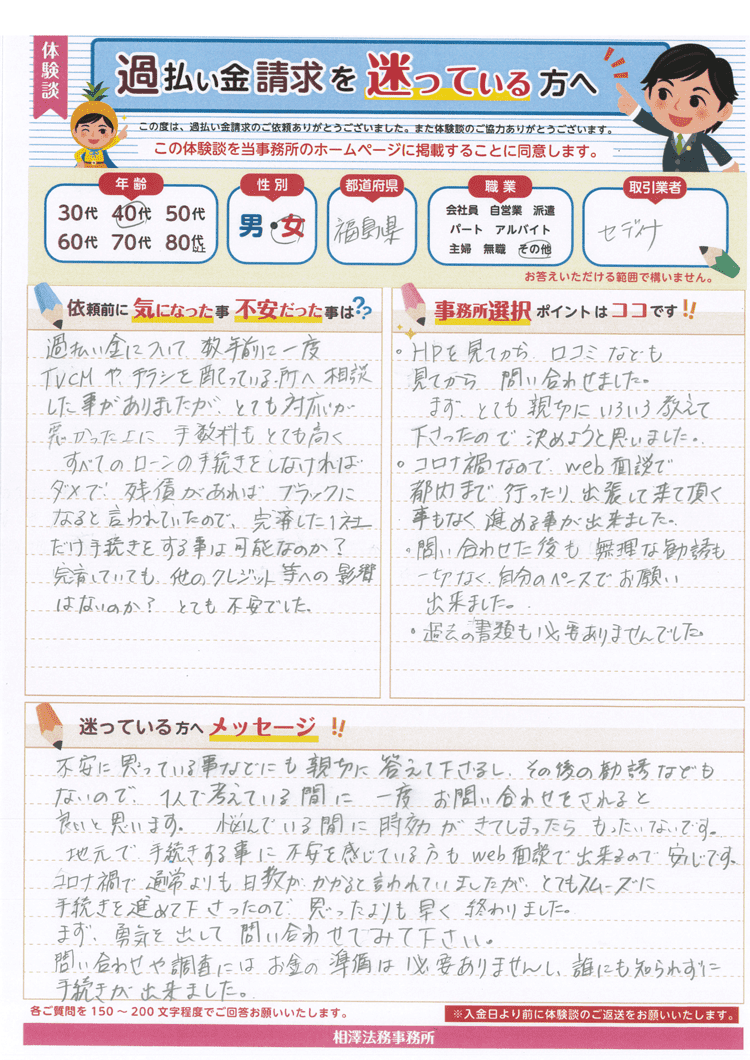 体験談
過払い金請求を迷っている方へ
この度は、過払い金請求のご依頼ありがとうございました。また体験談のご協力ありがとうございます。
この体験談を当事務所のホームページに掲載することに同意します。
年齢
30代 40代 50代
60代 70代 80代以上
性別
男・女
都道府県
福島県
職業
会社員 自営業 派遣
パート アルバイト
主婦 無職 その他
取引業者
セディナ
お答えいただける範囲で構いません。
依頼前に気になった事不安だった事は??
過払い金について 数年前に一度
TVCMや、チラシを配っている所へ相談
した事がありましたが、とても対応が
悪かった上に 手数料もとても高く
すべてのローンの手続きをしなければ
ダメで、残債があれば ブラックに
なると言われていたので、完済した1社
だけ手続きをする事は可能なのか?
完済していても、他のクレジット等への影響
はないのか? とても不安でした。
事務所選択ポイントはココです!!
・HPを見てから 口コミなども
見てから 問い合わせました。
まず、とても親切にいろいろ教えて
下さったので 決めようと思いました。
・コロナ禍なので web面談で
都内まで行ったり、出張して来て頂く
事もなく進める事が出来ました。
・問い合わせた後も 無理な勧誘も
一切なく、自分のペースでお願い
出来ました。
・過去の書類も必要ありませんでした。
迷っている方へメッセージ!!
不安に思っている事などにも親切に答えて下さるし、その後の勧誘なども
ないので、1人で考えている間に 一度 お問い合わせをされると
良いと思います。 悩んでいる間に 時効が きてしまったら もったいないです。
地元で手続きする事に不安を感じている方も web面談で出来るので安心です。
コロナ禍で通常よりも日数がかかると言われていましたが、とてもスムーズに
手続きを進めて下さったので 思ったよりも早く 終わりました。
まず、勇気を出して 問い合わせてみて下さい。
問い合わせや調査には お金の準備は 必要ありませんし、誰にも知られずに
手続きが出来ました。
各ご質問を150〜200文字程度でご回答お願いいたします。
※入金日より前に体験談のご返送をお願いいたします。
相澤法務事務所